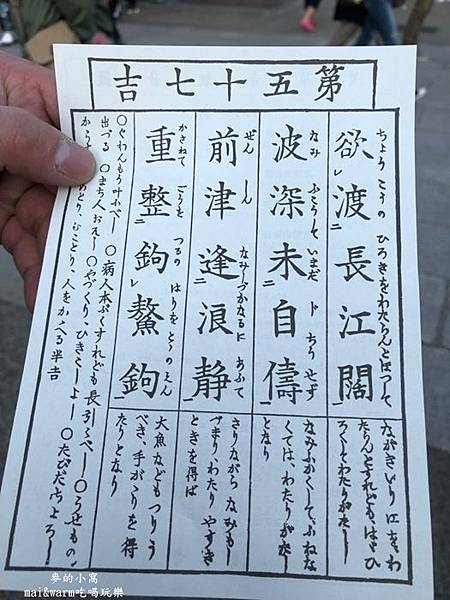 第五十七吉
欲渡長江闊
ちょうこうの ひろきをわたらんとほつして
ながきいり江をわ
たらんとすれども、はゞひ
ろくしてわたりがたし
波深未自儔
なみふこうして いまだ ト ちうせず
なみふかくして、ふねな
くては、わたりがたし
となり
前津逢浪静
ぜんしん なみしづかなるに あふて
さりながらなみもし
づまり、わたりやすき
ときを得ば
重整鉤鰲鉤
かさねて ごうを つるの はりをとゝのえん
大魚などもつりう
べき、手がゝりを得
たりとなり
○ぐわんもう叶ふべし ○病人本ぷくすれども長引くべし ○うせもの、
出づる ○まち人おそし ○やづくり、ひきこしよし ○たびだちよろし
めとり、むことり、人をかゝへる半吉
麥的小窩
mai&warm吃喝玩樂